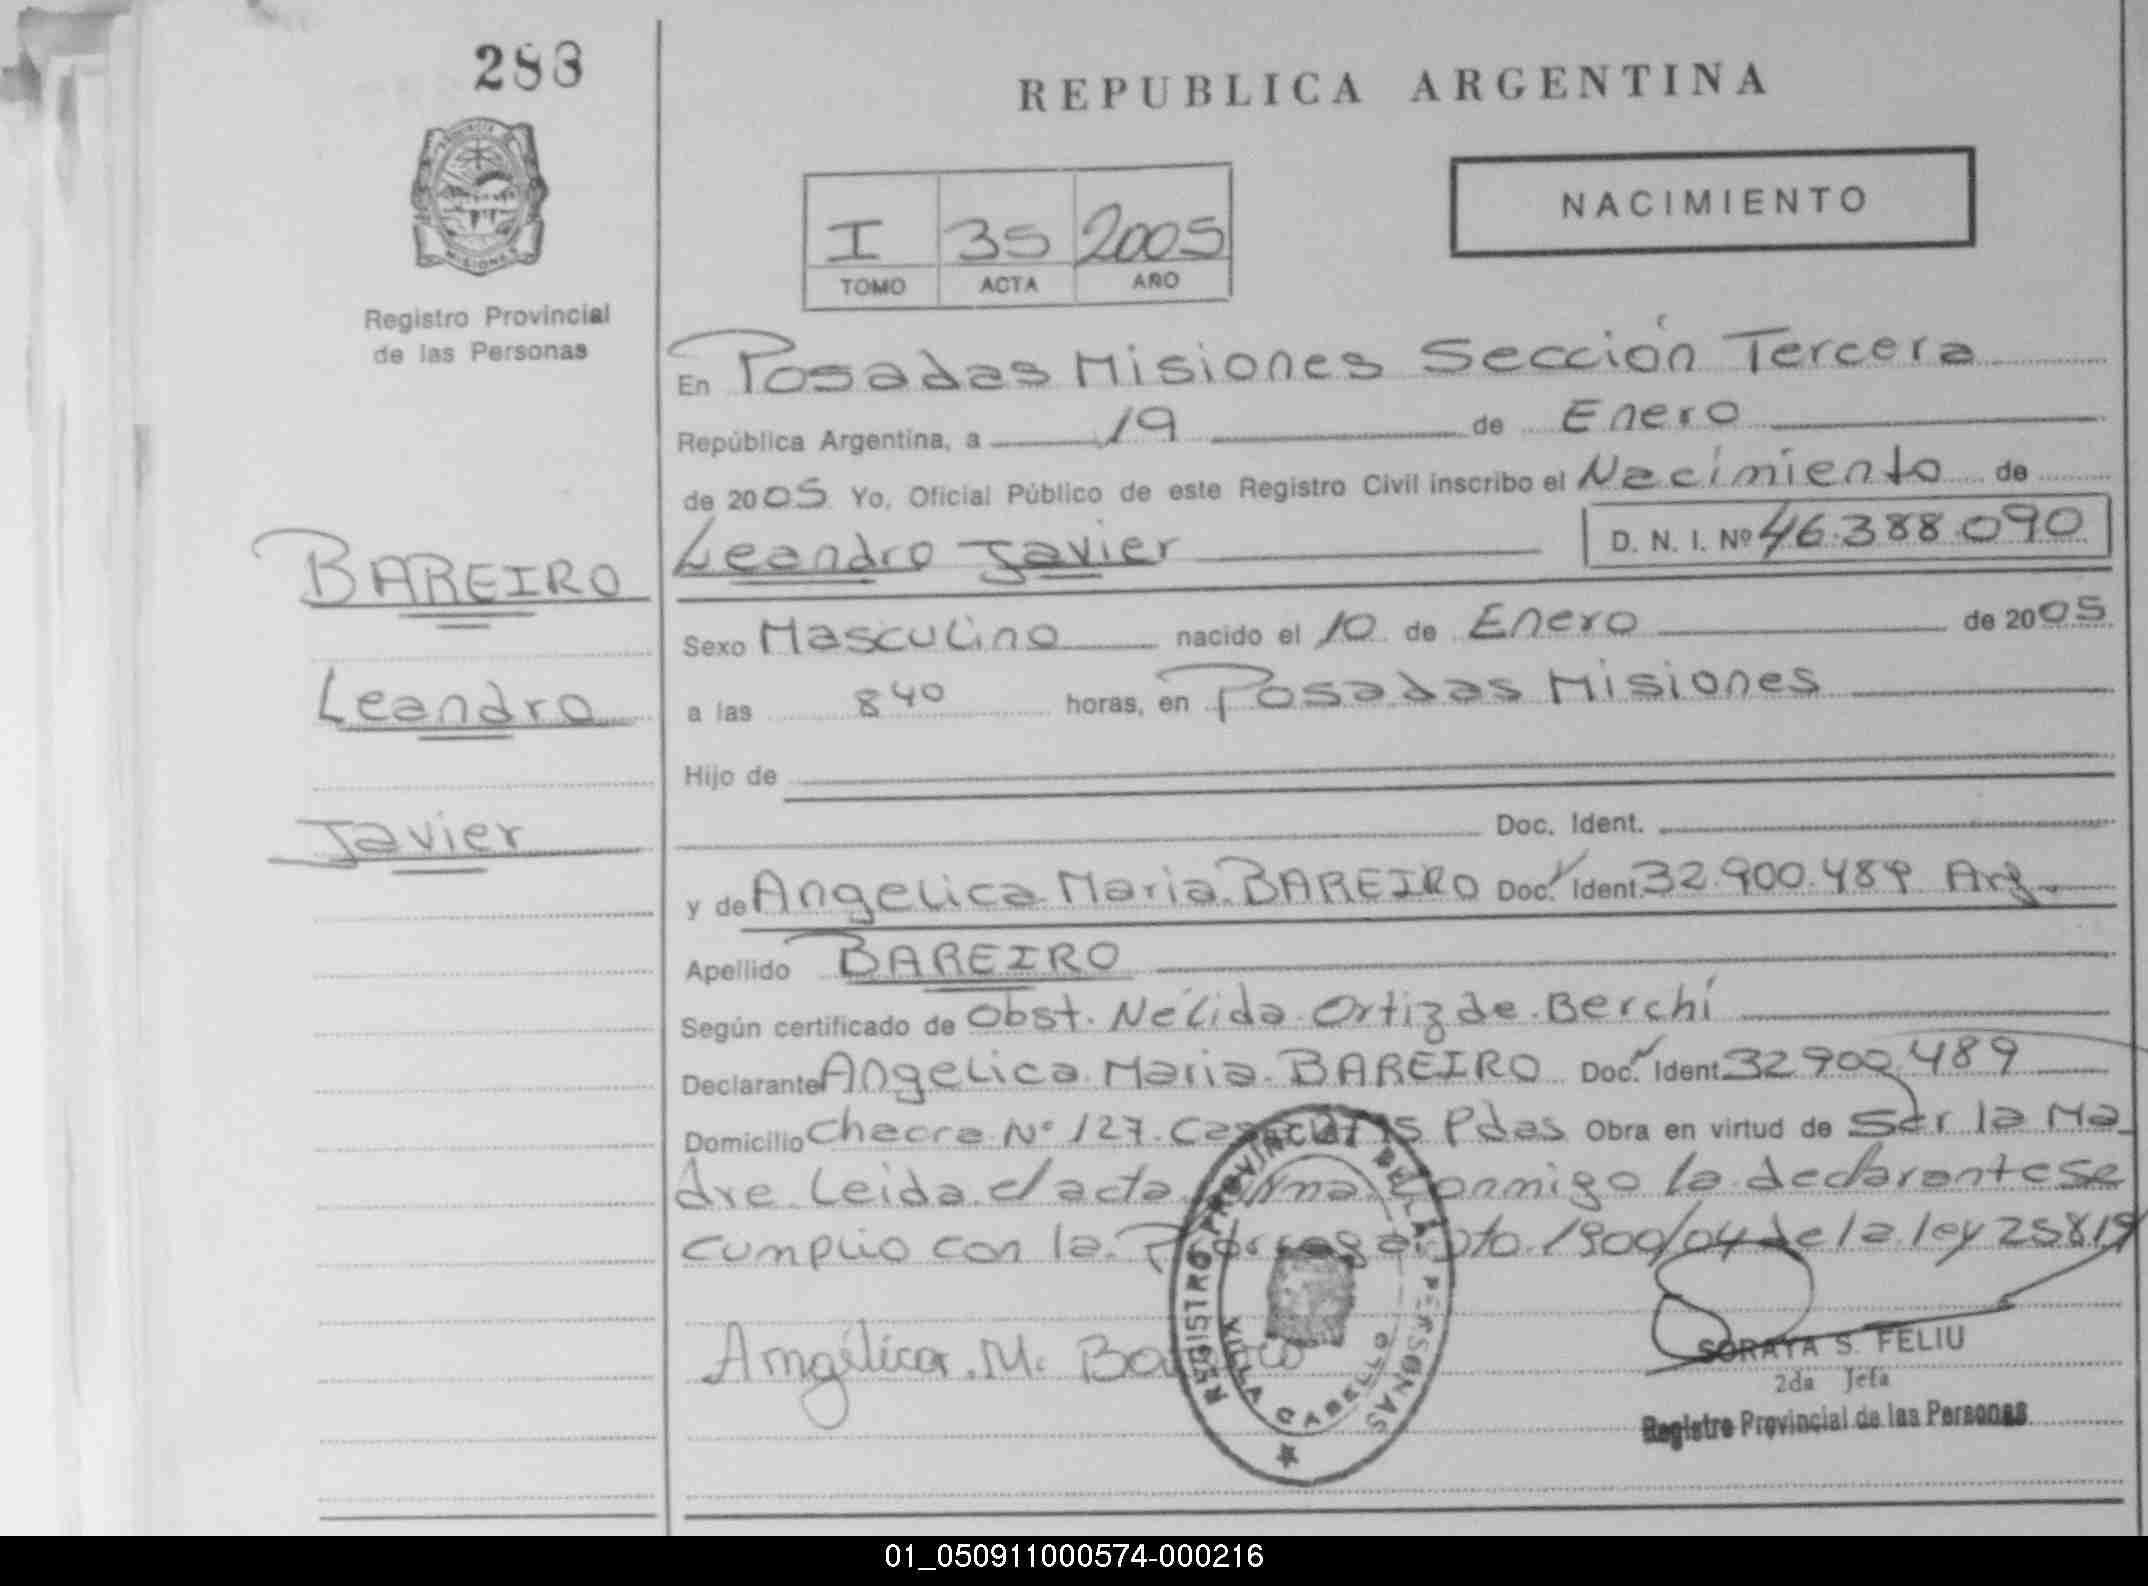 283
REPUBLICA ARGENTINA
PROVINCIA DE
MISIONES
Registro Provincial
de las Personas
I 35 2005
TOMO ACTA AÑO
NACIMIENTO
En Posadas Misiones Sección Tercera
República Argentina, a 19 de Enero
de 2005 Yo, Oficial Público de este Registro Civil inscribo el Nacimiento de
BAREIRO
Leandro
Javier
Leandro Javier D. N. I. Nº 46.388.090
Sexo Masculino nacido el 10 de Enero de 2005
a las 8 40 horas, en Posadas Misiones
Hijo de
Doc. Ident.
y de Angelica Maria BAREIRO Doc. Ident. 32.900.489 Arg.
Apellido BAREIRO
Según certificado de Obst. Nélida Ortiz de Berchi
Declarante Angelica Maria BAREIRO Doc. Ident. 32.900.489
Domicilio Chacra Nº 127. Casa Pdas Obra en virtud de Ser la Ma
dre Leida el acta firma conmigo la declarante se
cumplio con la 1900/04 de la ley 25819
Angélica. M. Bareiro
REGISTRO PROVINCIAL DE LAS PERSONAS
VILLA CABELLO
SORAYA S. FELIU
2da Jefa
Registro Provincial de las Personas
01_050911000574-000216